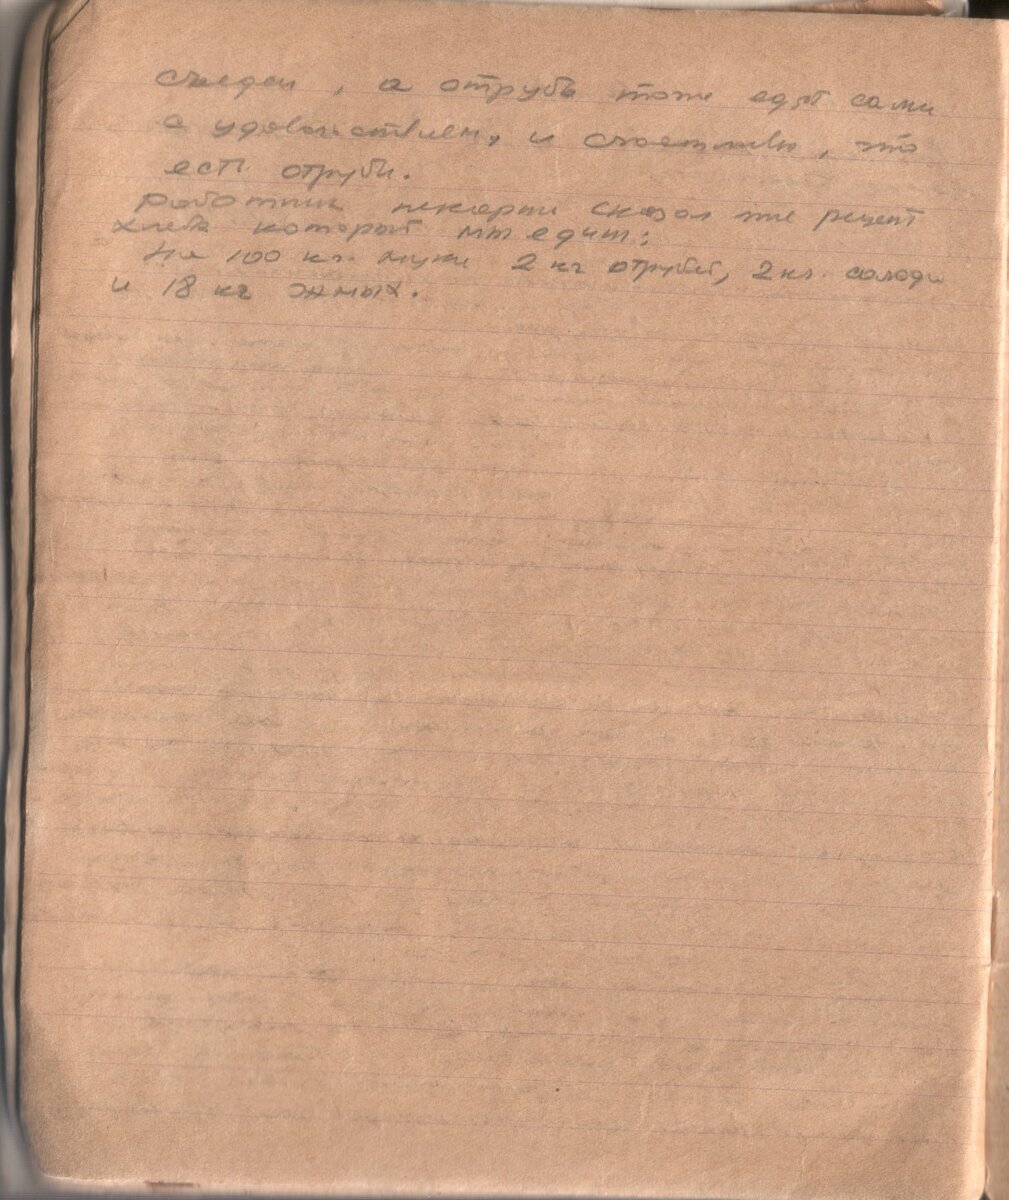 съеден, а отрубь тоже едят сами
с удовольствием, и счастливы, что
есть отруби.
Работник пекарни сказал мне рецепт
хлеба который мы едим:
На 100 кг. муки 2 кг отрубей, 2 кг. солода
и 18 кг жмых.